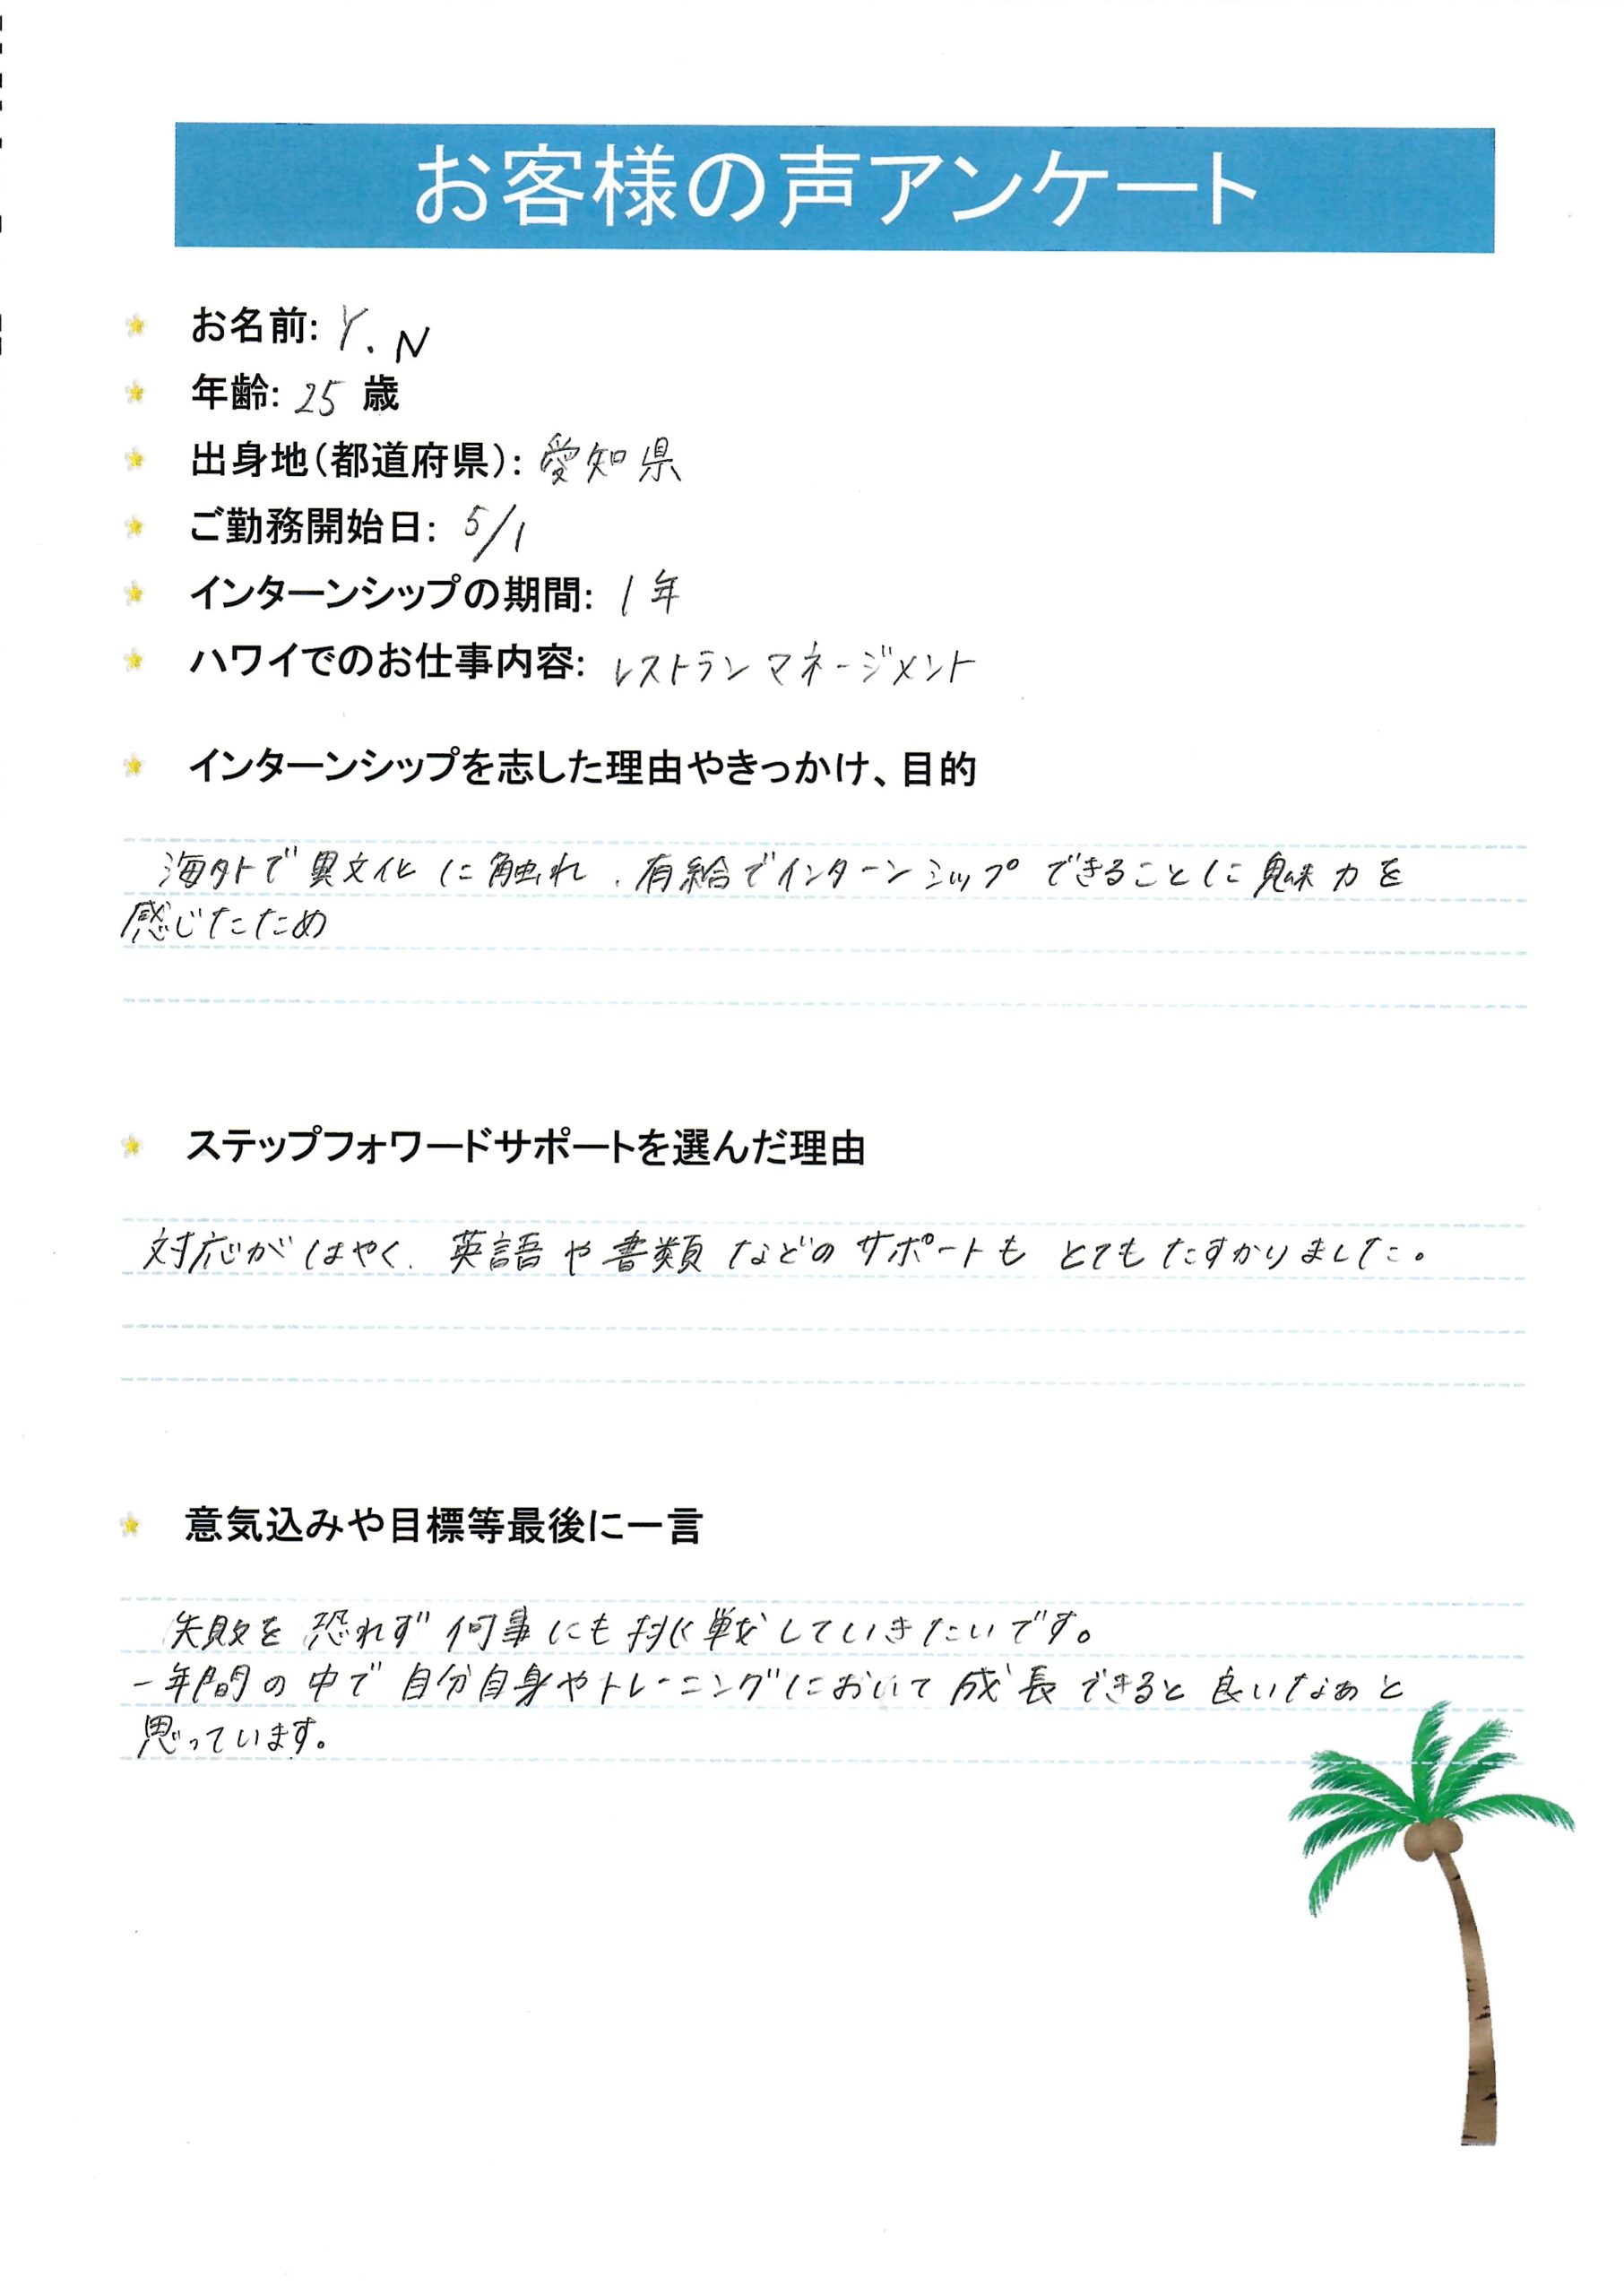 お客様の声アンケート
お名前: Y.N
年齢: 25 歳
出身地(都道府県): 愛知県
ご勤務開始日: 5/1
インターンシップの期間: 1年
ハワイでのお仕事内容: レストランマネージメント
インターンシップを志した理由やきっかけ、目的
海外で異文化に触れ、有給でインターンシップできることに魅力を
感じたため
ステップフォワードサポートを選んだ理由
対応がはやく、英語や書類などのサポートもとてもたすかりました。
意気込みや目標等最後に一言
失敗を恐れず何事にも挑戦していきたいです。
一年間の中で自分自身やトレーニングにおいて成長できると良いなぁと
思っています。